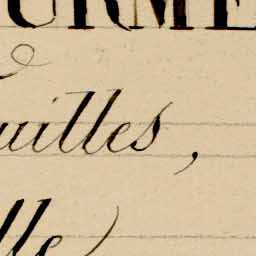 OURME
uilles,
lle